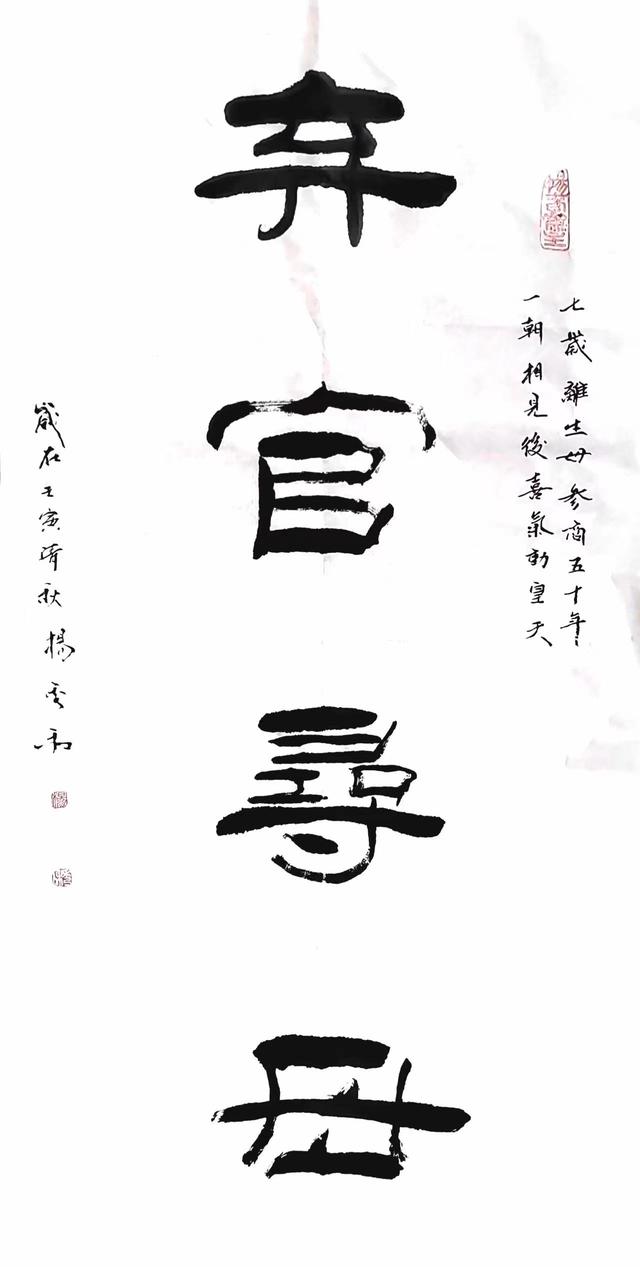 七歲離生母参商五十年
一朝相見後喜氣動皇天
弃官尋母
歲在壬寅清秋 楊